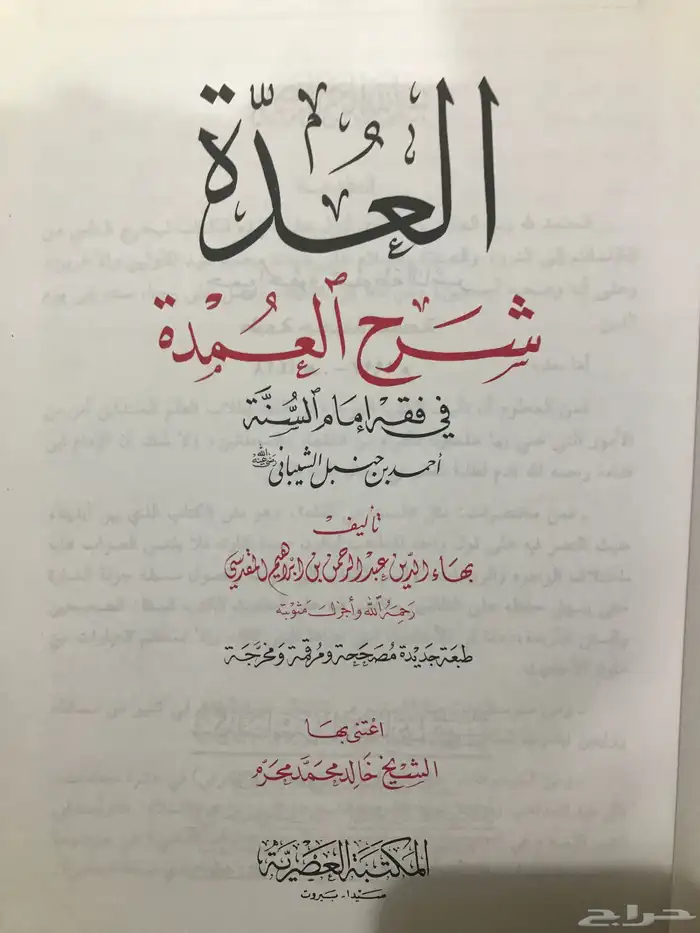 العُدّة
شرح العُمدة
في فقه إمام السُّنَّة
أحمد بن حنبل الشيباني رضي الله عنه
تأليف
بهاء الدين عبد الرحمن بن ابراهيم المقدسي
رحمه الله وأجزل مثوبته
طبعة جديدة مُصَحَّحة ومُرقمة ومخرَّجة
اعتنى بها
الشيخ خالد محمد محرم
المكتبة العصرية
صيدا - بيروت
حراج